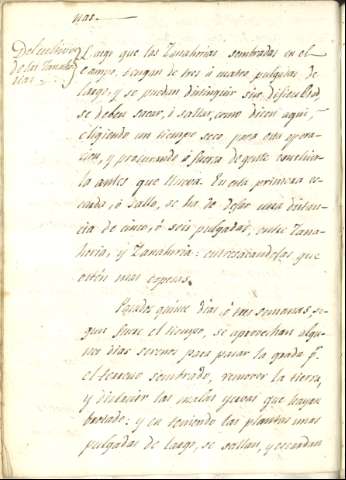 nas.
Del cultivo
de las Zanaho
rias.
Luego que las Zanahorias sembradas en el
campo, tengan de tres á quatro pulgadas de
largo, y se puedan distinguir sin dificultad,
se deben sacar, ó sallar, como dicen aqui,
eligiendo un tiempo seco para esta opera
cion, y procurando á fuerza de gente concluir
la antes que llueva. En esta primera es
carda, ó sallo, se ha de dejar una distan
cia de cinco, ó seis pulgadas, entre Zana
horia, y Zanahoria: entresacandolas que
estén mas espesas.
Pasados quince dias, ó tres semanas, se
gun fuere el tiempo, se aprovechan algu
nos dias serenos para pasar la grada pr.
el terreno sembrado, remover la tierra,
y destruir las malas yervas que hayan
brotado: y en teniendo las plantas unas
pulgadas de largo, se sallan, y escardan